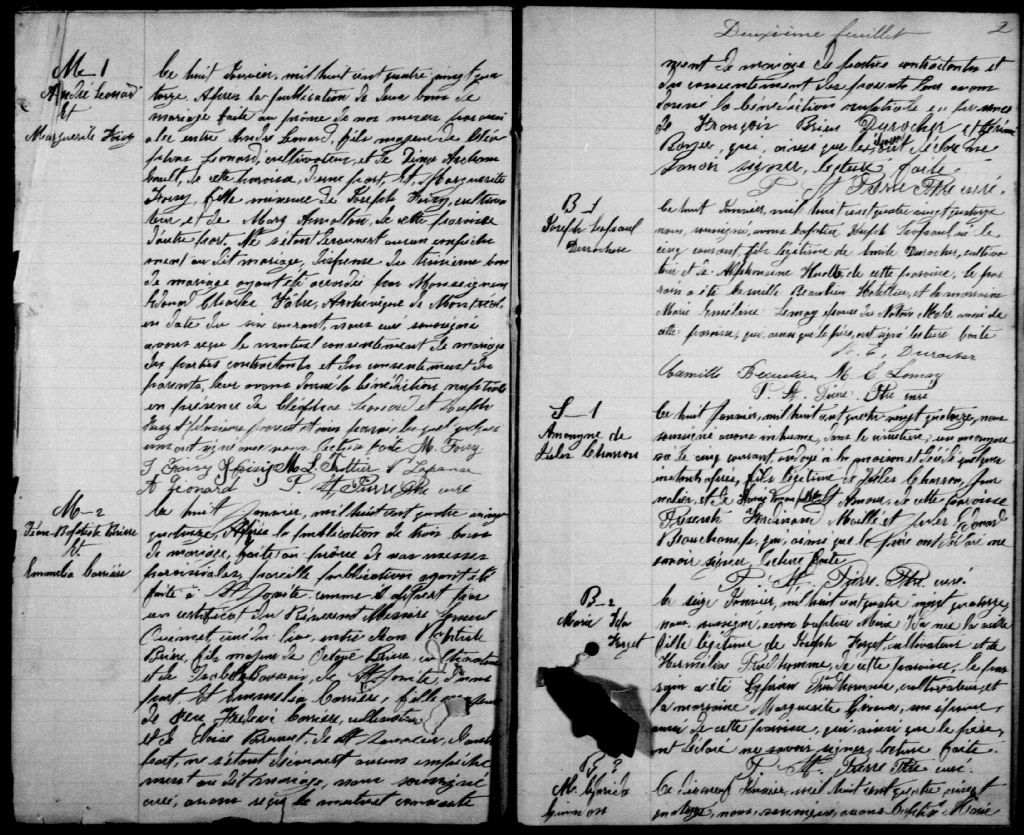 M-1
André Leonard
Et
Marguerite Foisy
Le huit Janvier, mil huit cent quatre vingt qua
torze, Après la publication de deux bans de
mariage faite au prône de nos messes paroissi
ales entre André Leonard, fils majeur de Cléo
phas Leonard, cultivateur, et de Dina Archam
bault, de cette paroisse, d'une part, Et Marguerite
Foisy, fille mineure de Joseph Foisy, cultiva
teur, et de Mary de cette paroisse
d'autre part. Ne s'étant découvert aucun empêche
ment au dit mariage, dispense du troisième ban
de mariage ayant été accordée par Monseigneur
Edouard Charles Fabre, Archevêque de Montréal
en date du six courant, nous curé soussigné
avons reçu le mutuel consentement de mariage
des parties contractantes et du consentement des
parents, leur avons donné la bénédiction nuptiale
en présence de Cléophas Leonard et Joseph
Foisy et plusieurs parents et amis parmi lesquels quelques
uns ont signé avec nous lecture faite M. Foisy
J. Foisy
A Leonard P. St Pierre Ptre curé
M-2
Jean-Baptiste Brière
Et
Emmelia Carrière
Le huit Janvier, mil huit cent quatre vingt
quatorze, Après la publication de trois bans
de mariage, faite au prône de nos messes
paroissiales, pareille publication ayant été
faite à St Jovite comme il appert par
un certificat du Révérend Messire
Ouimet, curé du lieu, entre Jean Baptiste
Brière, fils majeur de Octave Brière, cultivateur
et de de St Jovite, d'une
part, Et Emmelia Carrière, fille
de Carrière, cultivateur
et de Eloise de St Sauveur, d'autre
part, ne s'étant découvert aucun empêche
ment au dit mariage, nous soussigné
curé, avons reçu le mutuel consente
Deuxième feuillet 2
ment de mariage de parties contractantes et
du consentement des parents leur avons
donné la bénédiction nuptiale en présence
de François Brien Durocher et
qui, ainsi que les époux ont déclaré ne
savoir signer, lecture faite.
P. St Pierre Ptre curé.
B-1
Joseph
Durocher
Le huit Janvier, mil huit cent quatre vingt quatorze
nous, soussigné, avons baptisé Joseph né le
cinq courant, fils légitime de Emile Durocher, cultiva
teur et de Alphonsine de cette paroisse, le par
rain a été Camille Beaulieu Hôtelier, et la marraine
Marie Emeline Lemay épouse du Notaire aussi de
cette paroisse, qui, ainsi que le père, ont signé lecture faite
E. Durocher
Camille Beaulieu M. E Lemay
P. St. Pierre Ptre curé
S-1
Anonyme de
Jules Charron
Le huit Janvier, mil huit cent quatre vingt quatorze, nous
soussigné avons inhumé, dans le cimetière, un anonyme
né le cinq courant, ondoyé à la maison et décédé quelques
instants après, fils légitime de Jules Charron, jour
nalier, et de St Amour, de cette paroisse
Présents Ferdinand Maillé et Jules Edouard
Beauchamp, qui, ainsi que le père ont déclaré ne
savoir signer, lecture faite
P. St. Pierre Ptre curé.
B-2
Marie Ida
Forget
Le seize Janvier, mil huit cent quatre vingt quatorze,
nous, soussigné, avons baptisé Marie Ida née la veille
fille légitime de Joseph Forget, cultivateur et de
Herméline Prud'homme, de cette paroisse, le par
rain a été Cyprien Prud'homme, cultivateur, et
la marraine Marguerite son épouse,
aussi de cette paroisse, qui, ainsi que le père,
ont déclaré ne savoir signer, lecture faite.
P. St. Pierre Ptre curé.
B-3
M.
Le dix-neuf Janvier, mil huit cent quatre vingt
quatorze, nous, soussigné, avons baptisé Marie